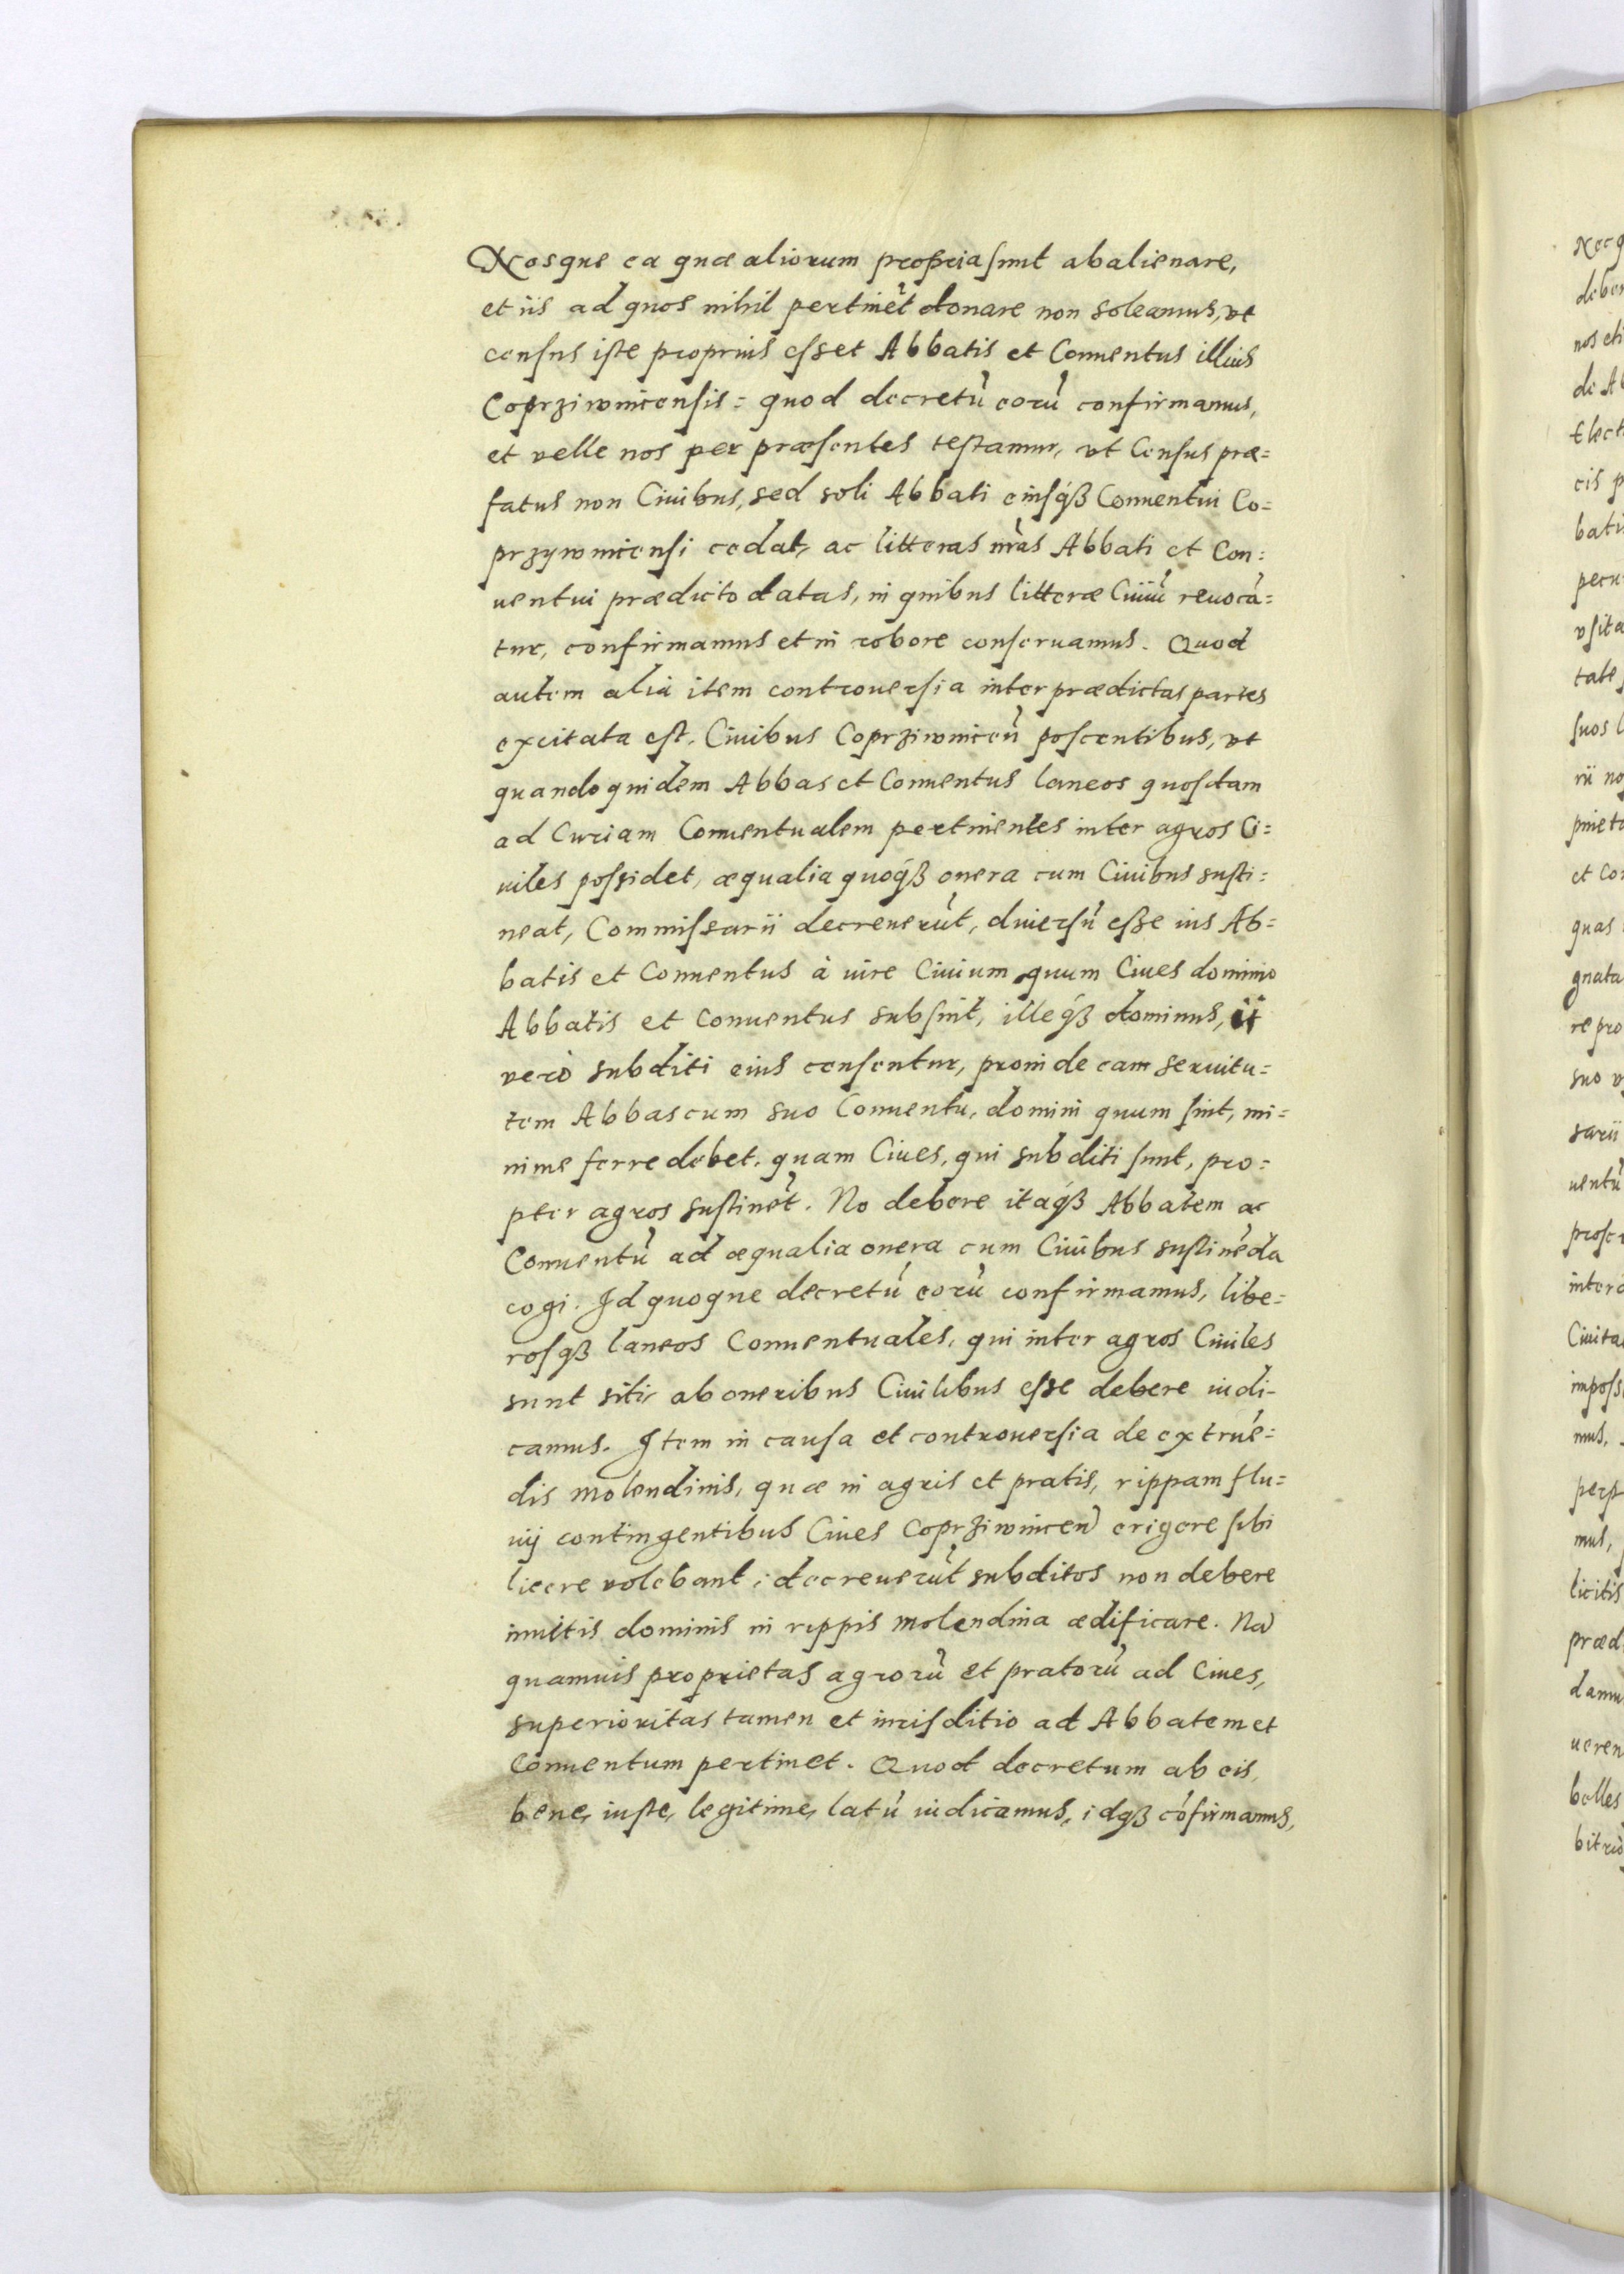 Nosque ea quæ aliorum propria sunt abalienare,
et iis ad quos nihil pertinet̃ donare non soleamus, vt
census iste proprius esset Abbatis et Conuentus illius
Coprziwnicensis: quod decretũ eorũ confirmamus,
et velle nos per præsentes testamur, vt Census præ=
fatus non Ciuibus, sed soli Abbati eiusq́ꝫ Conuentui Co=
przywnicensi cedat, ac litteras nr̃as Abbati et Con=
uentui prædicto datas, in quibus litteræ Ciuiũ reuocã=
tur, confirmamus et in robore conseruamus. Quod
autem alia item controuersia inter prædictas partes
excitata est, Ciuibus Coprziwniceñ poscentibus, vt
quandoquidem Abbas et Conuentus laneos quosdam
ad Curiam Conuentualem pertinentes inter agros Ci=
uiles possidet, æqualia quoq́ꝫ onera cum Ciuibus susti=
neat, Commissarii decreuerũt, diuersũ esse ius Ab=
batis et Conuentus à iure Ciuium quum Ciues dominio
Abbatis et Conuentus subsint, illeq́ꝫ dominus, ii
verò subditi eius censentur, proinde eam seruitu=
tem Abbas cum suo Conuentu, domini quum sint, mi=
nime ferre debet, quam Ciues, qui subditi sunt, pro=
pter agros sustinẽt. No debere itaq́ꝫ Abbatem ac
Conuentũ ad æqualia onera cum Ciuibus sustinẽda
cogi. Id quoque decretũ eorũ confirmamus, libe=
rosqꝫ laneos Conuentuales, qui inter agros Ciuiles
sunt siti, ab oneribus Ciuilibus esse debere iudi-
camus. Item in causa et controuersia de extruẽ=
dis molendinis, quæ in agris et pratis, rippam flu=
uij contingentibus Ciues Coprziwniceñ erigere sibi
licere volebant; decreuerũt subditos non debere
inuitis dominis in rippis molendina ædificare. Nã
quamuis proprietas agrorũ et pratorũ ad Ciues,
superioritas tamen et iurisditio ad Abbatem et
Conuentum pertinet. Quod decretum ab eis,
bene, iuste, legitime, latũ iudicamus, idqꝫ cõfirmamus,